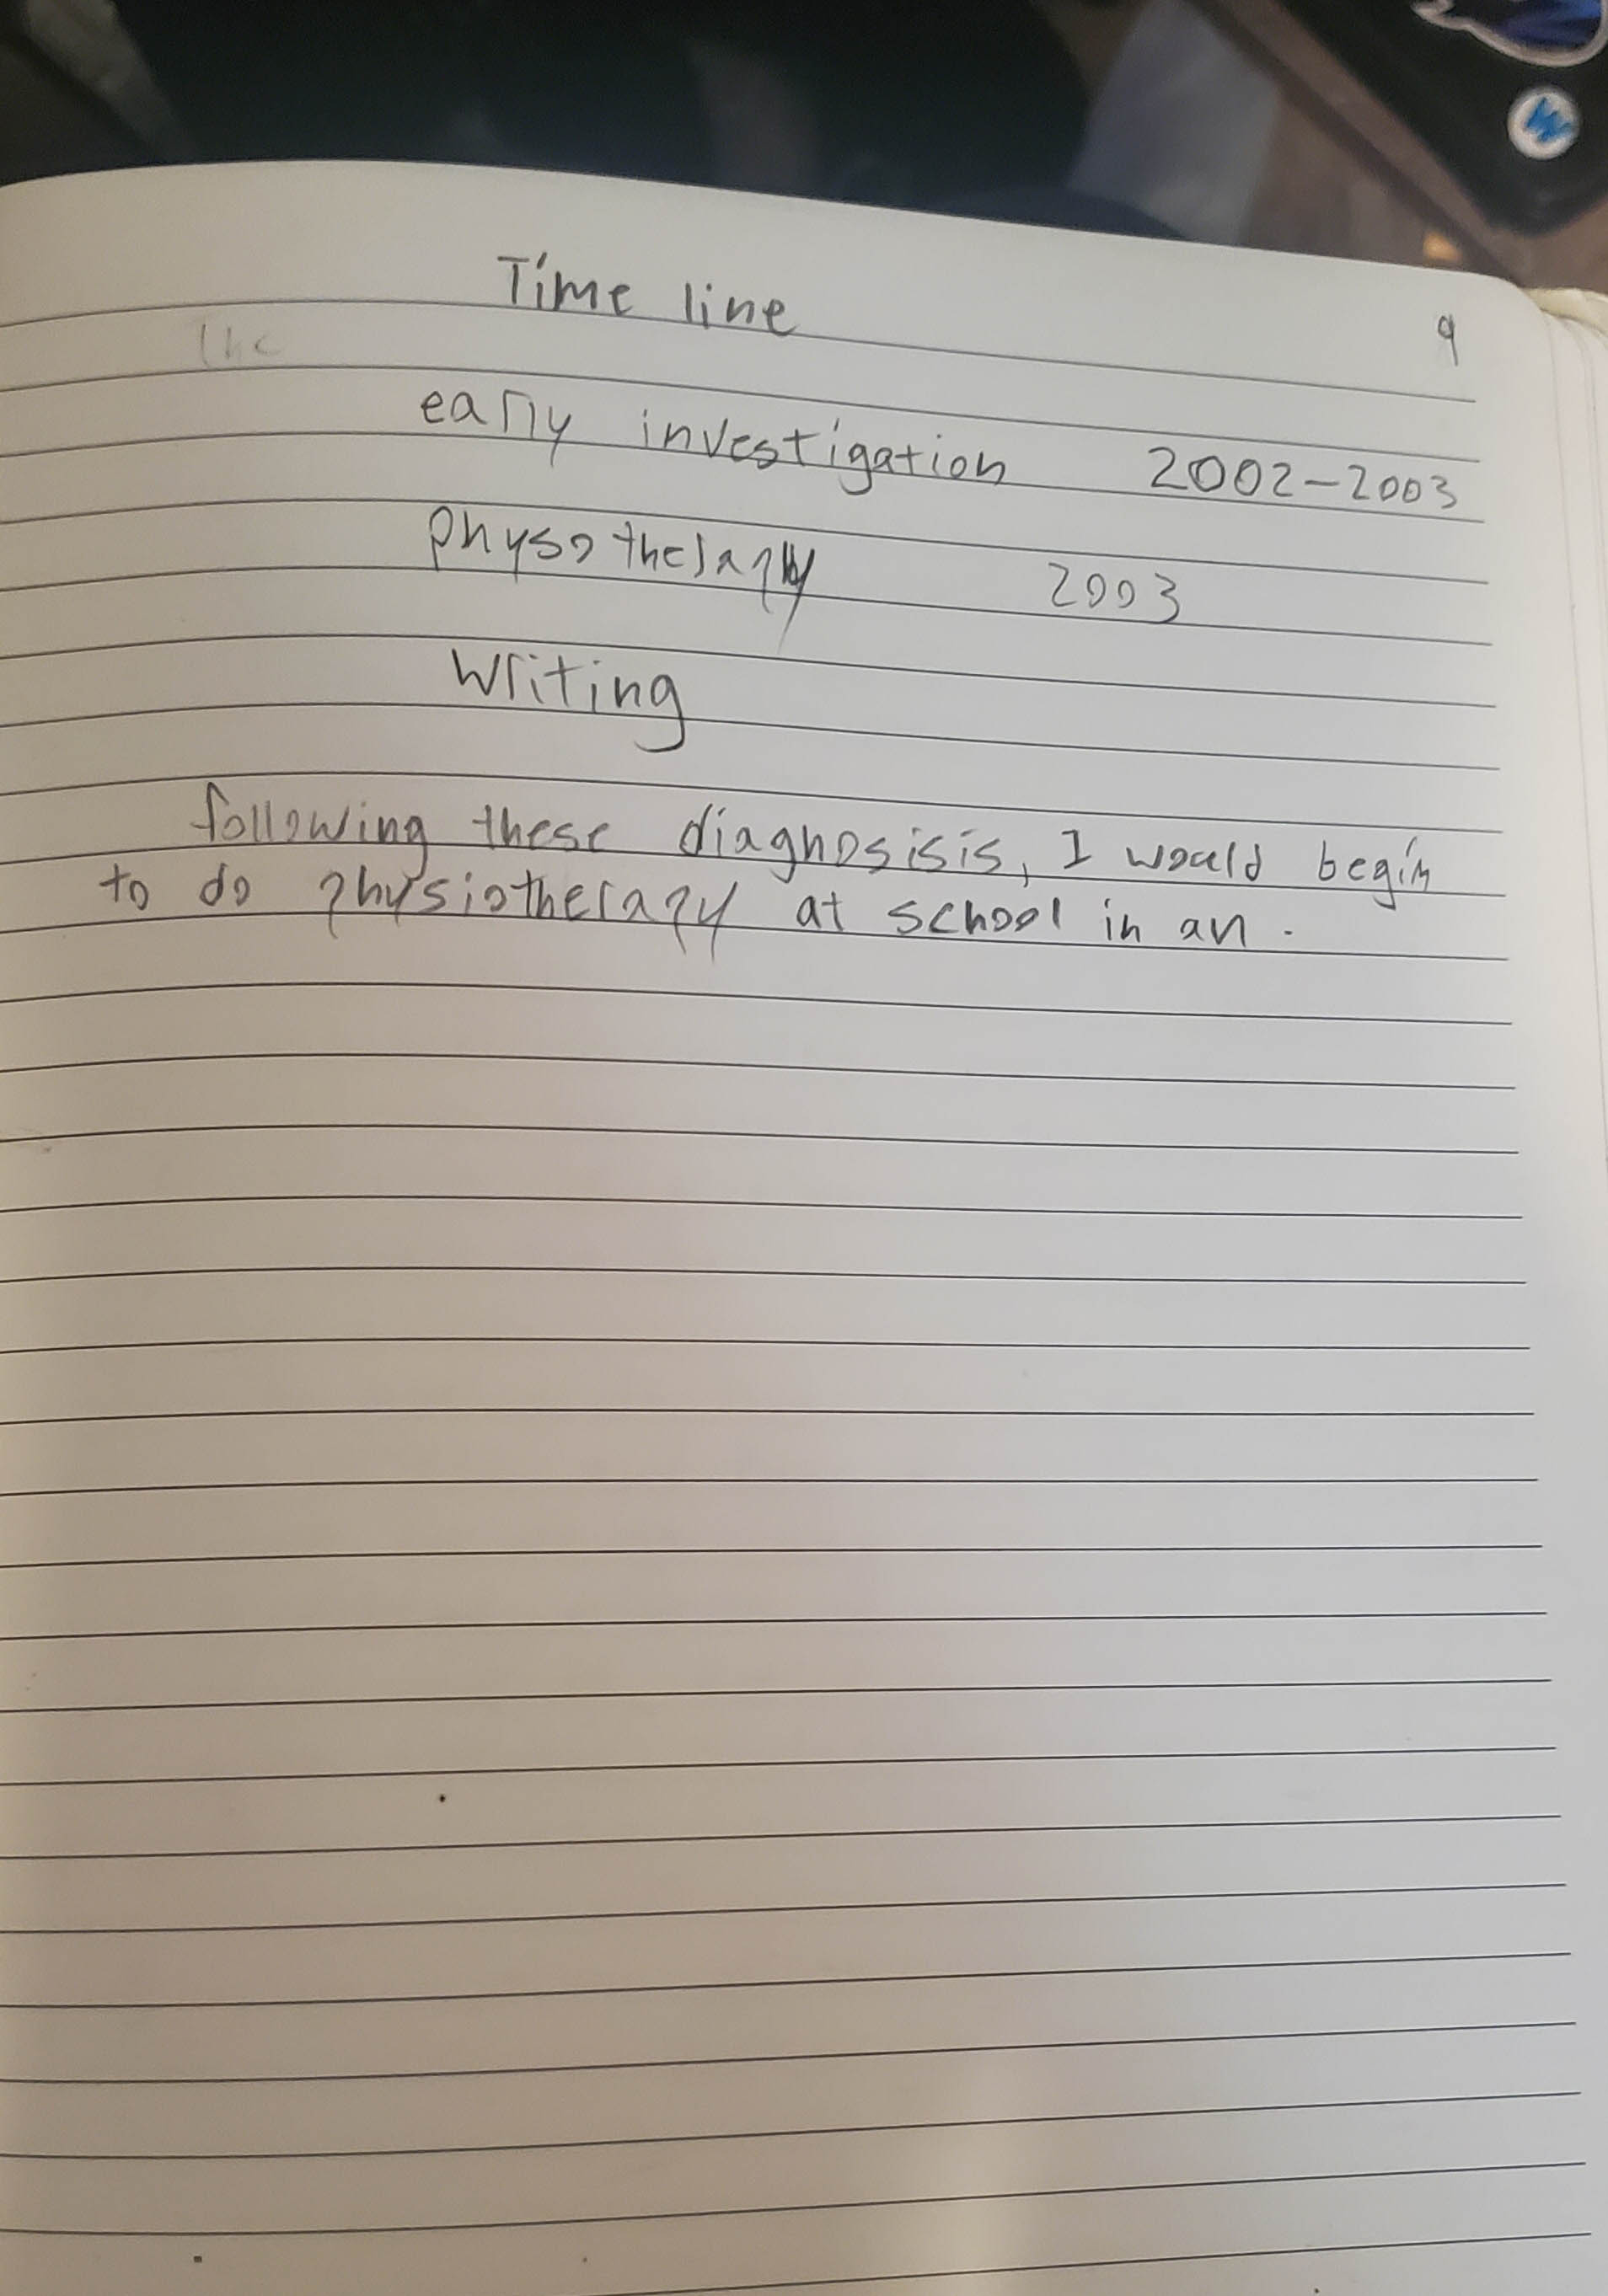 Time line
9
the
early investigation 2002-2003
physotherapy 2003
writing
following these diagnosisis, I would begin
to do physiotherapy at school in an.
W